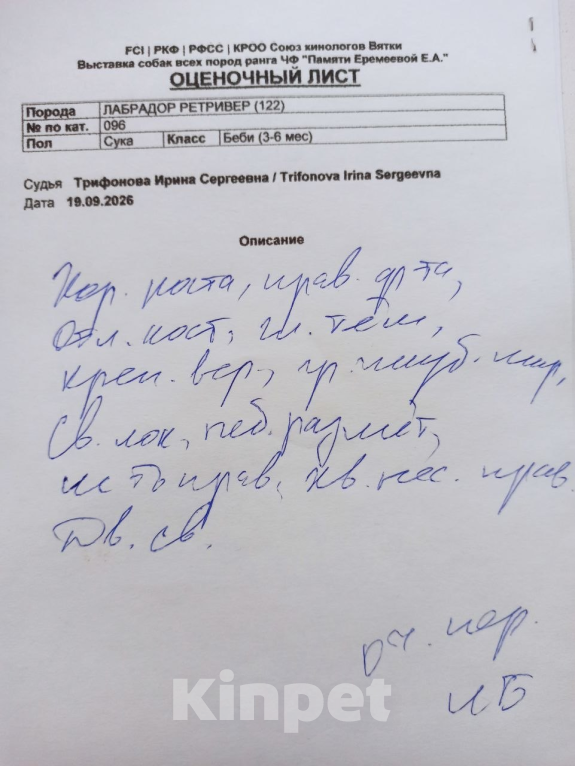 FCI | РКФ | РФСС | КРОО Союз кинологов Вятки
Выставка собак всех пород ранга ЧФ "Памяти Еремеевой Е.А."
ОЦЕНОЧНЫЙ ЛИСТ
Порода ЛАБРАДОР РЕТРИВЕР (122)
№ по кат. 096
Пол Сука Класс Беби (3-6 мес)
Судья Трифонова Ирина Сергеевна / Trifonova Irina Sergeevna
Дата 19.09.2026
Описание
Хор. роста, прав. ф-та,
Отл. кост, гл. тём,
креп. вер, гр. глуб. шир,
Св. лок, неб. размёт,
ш-ть прав, хв. нес. прав.
Дв. св.
оч. пер.
ЛБ
Kinpet